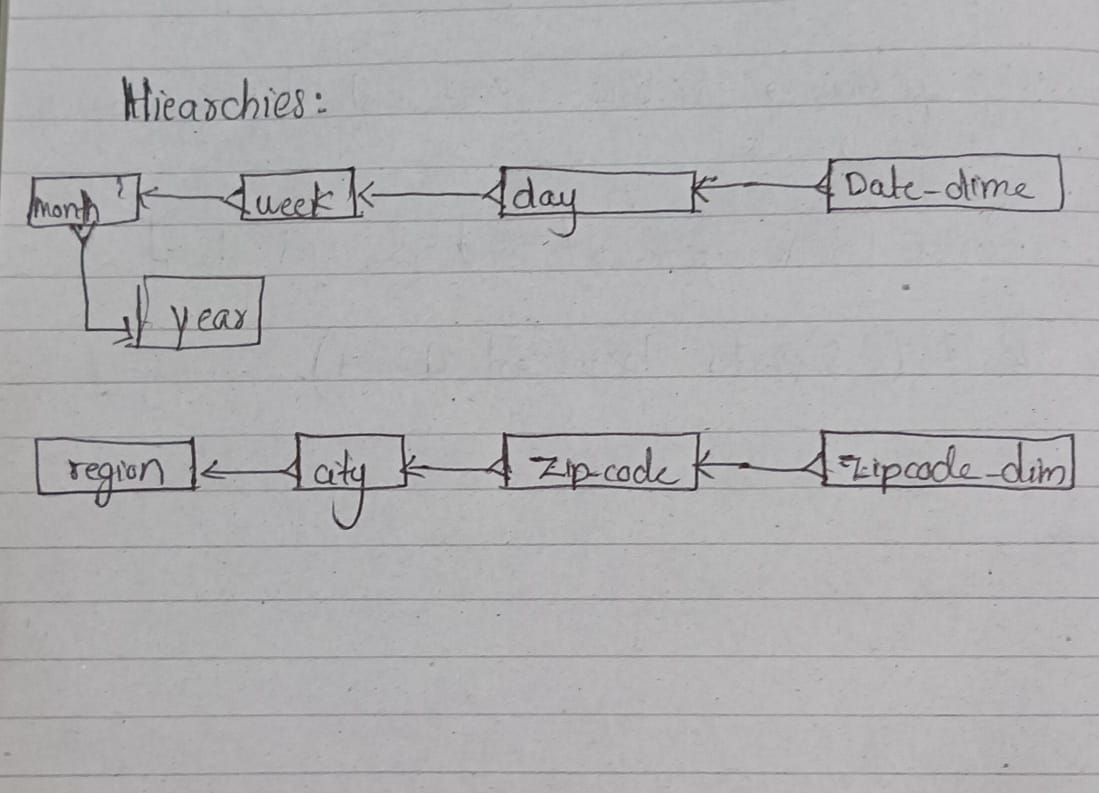 Hiearchies:
month week day Date-dime
year
region city Zip-code Zipcode-dim